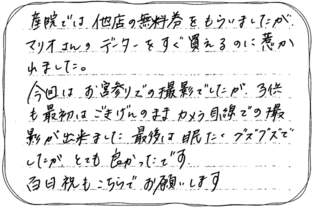 産院では他店の無料券をもらいましたが、
マリオさんのデーターをすぐ買えるのに惹か
れました。
今回はお宮参りでの撮影でしたが、子供
も最初はごきげんのままカメラ目線での撮
影が出来ました。最後は眠たくグズグズで
したが、とても良かったです
百日祝もこちらでお願いします